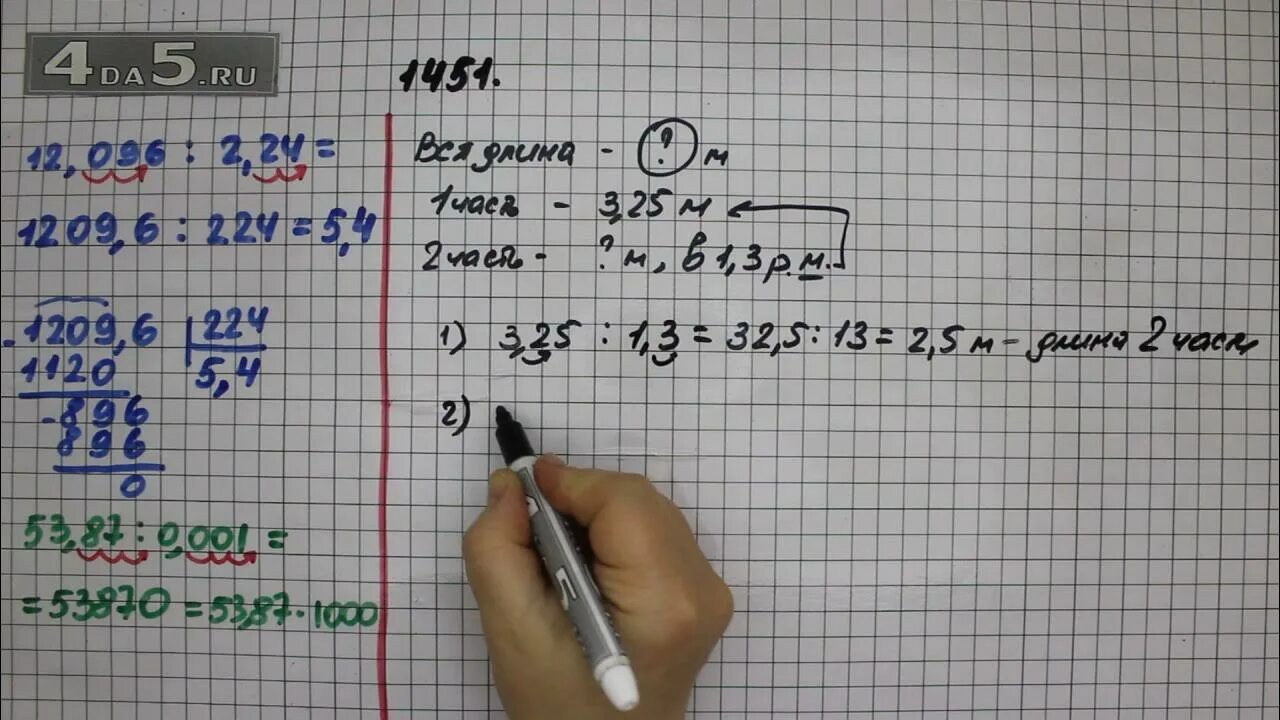 4DA5.RU
12,096 : 2,24 =
1209,6 : 224 = 5,4
- 1209,6 224
1120 5,4
- 896
896
0
53,87 : 0,001 =
= 53870 = 53,87 · 1000
1451.
Вся длина - ? м
1 часть - 3,25 м
2 часть - ? м, в 1,3 р. м.
1) 3,25 : 1,3 = 32,5 : 13 = 2,5 м - длина 2 части
2)